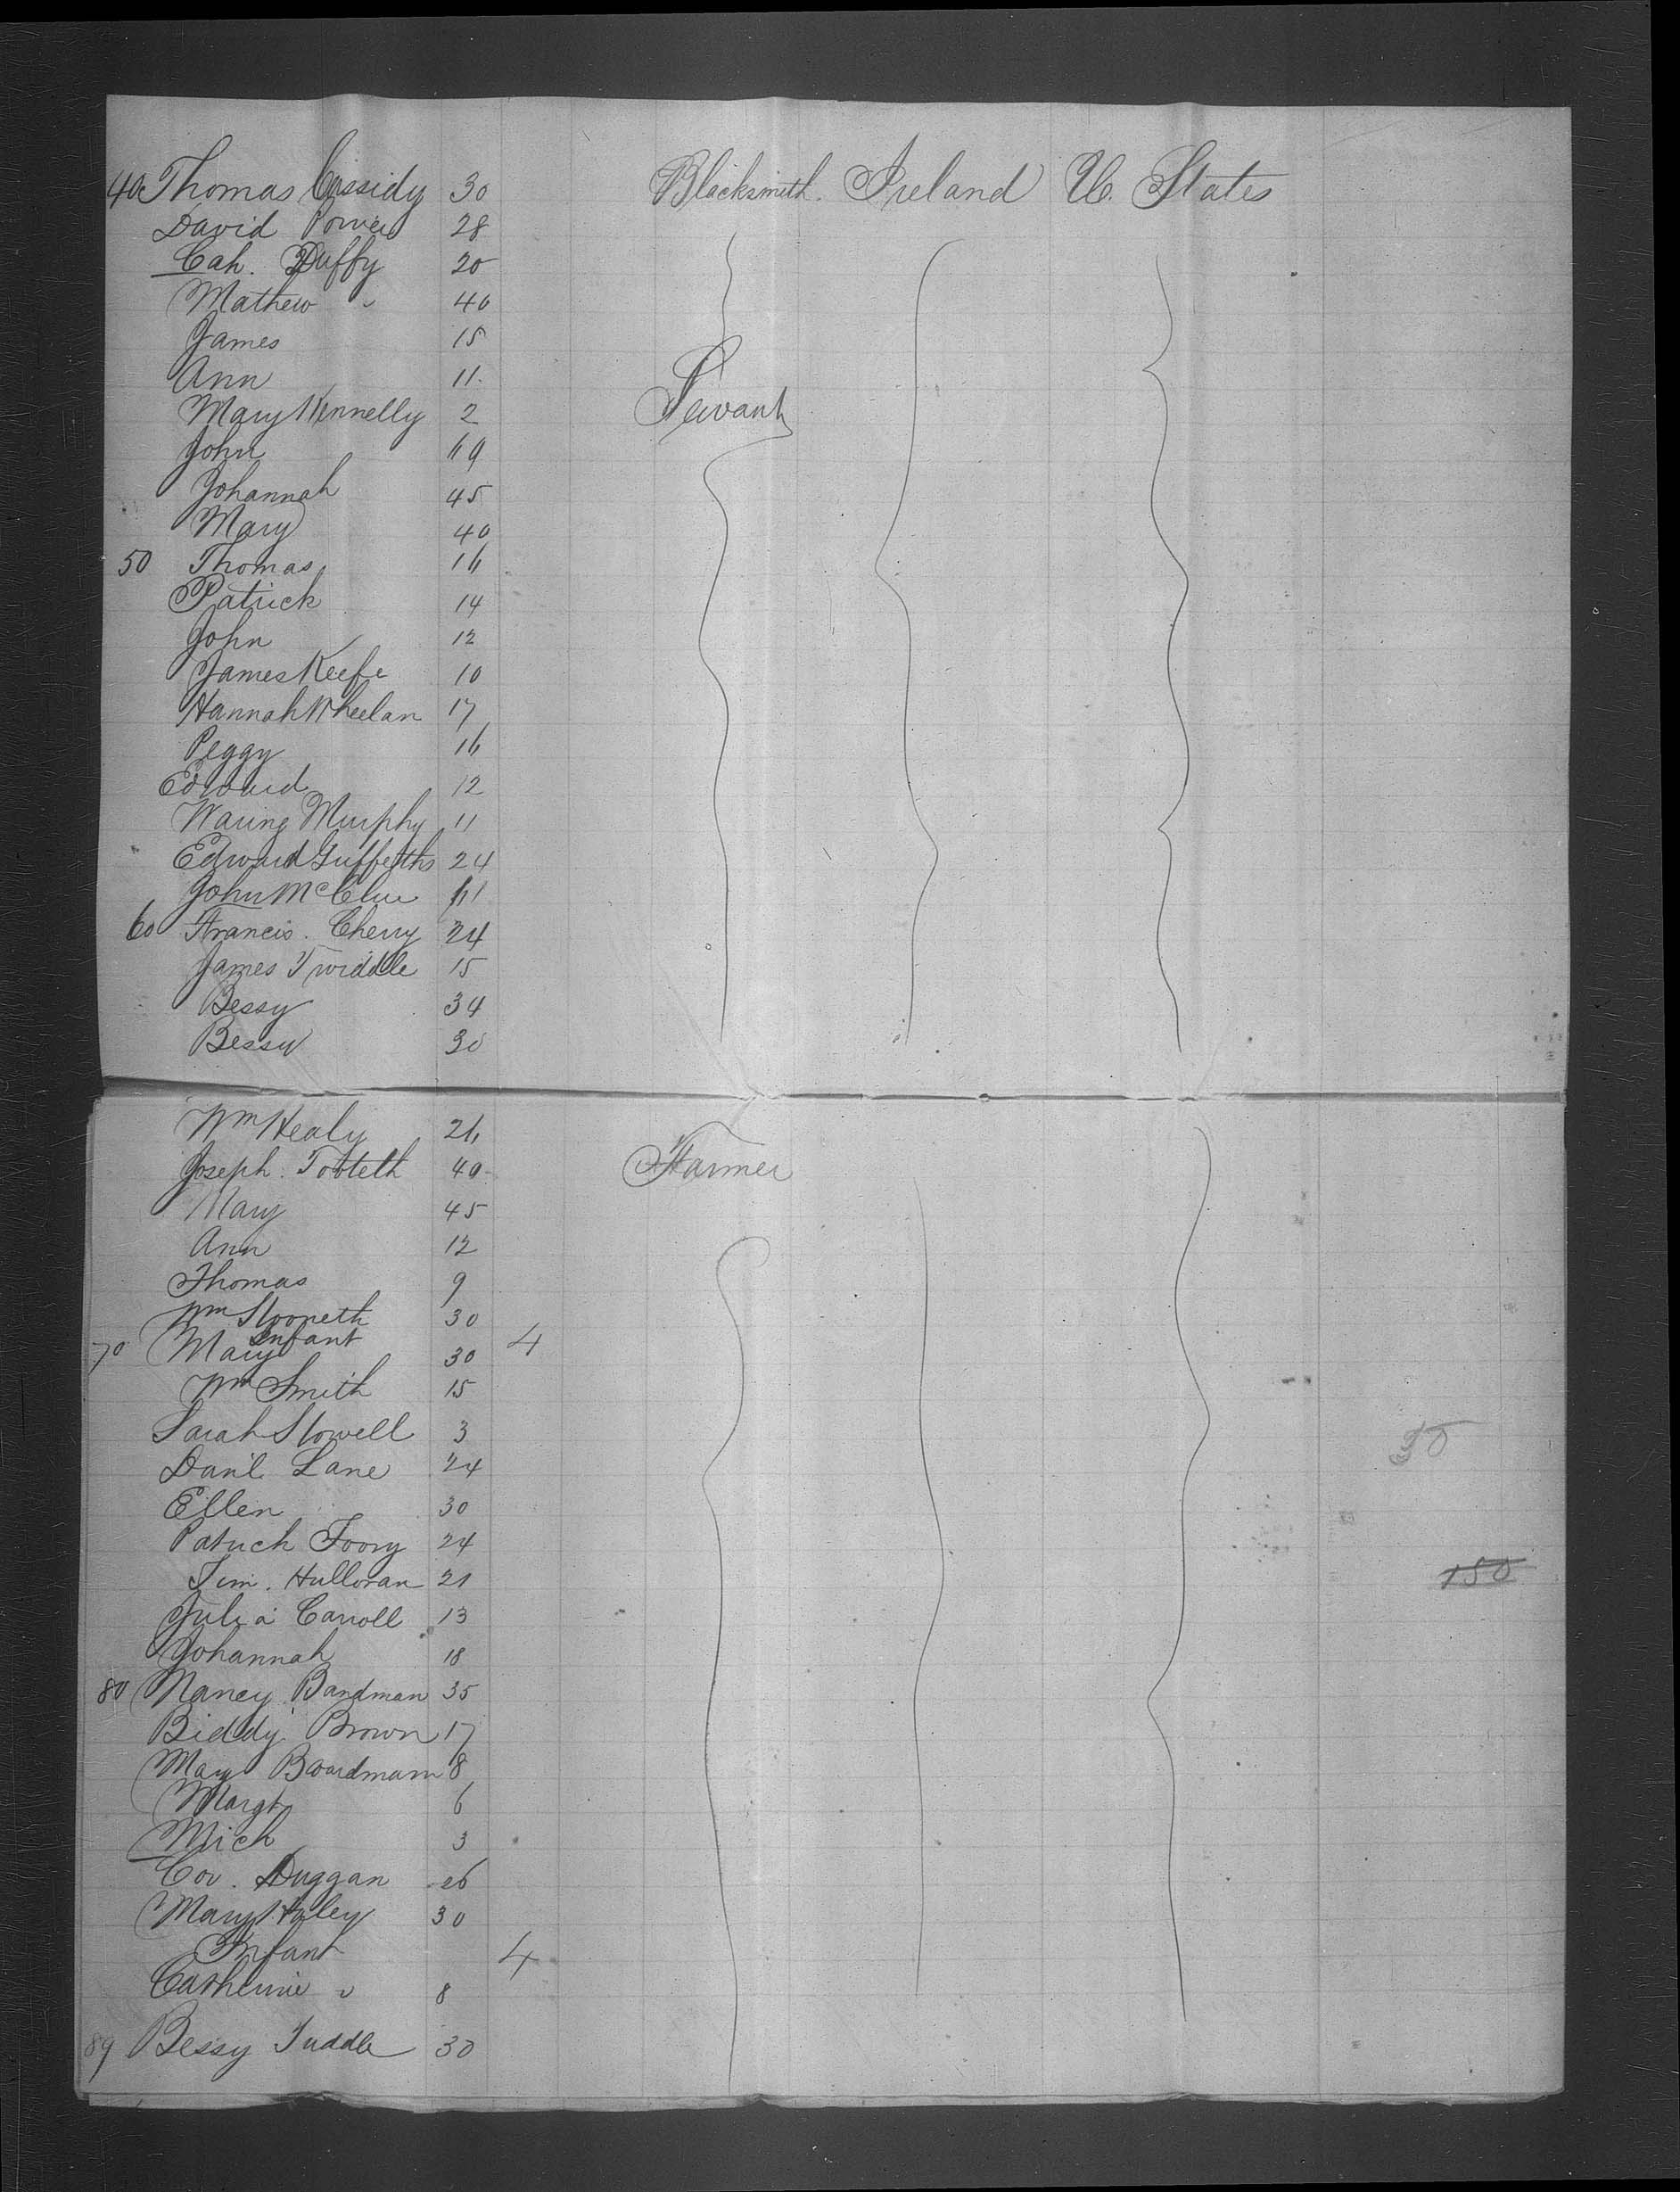 40 Thomas Cassidy 30 Blacksmith. Ireland U. States
David Power 28
Cah. Duffy 20
Mathew " 40
James 15
Ann 11
Mary Kennelly 2 Servant
John 19
Johannah 45
Mary 40
50 Thomas 16
Patrick 14
John 12
James Keefe 10
Hannah Wheelan 17
Peggy 16
Edward 12
Waring Murphy 11
Edward Guffeths 24
John McClue
60 Francis. Cherry 24
James Twiddle 15
Bessy 34
Bessy 30
Wm Healy 26
Joseph. Tooteth 40 Farmer
Mary 45
Ann 12
Thomas 9
Wm Slooneth 30
Infant
70 Mary 30 4
Wm Smith 15
Sarah Slowell 3
Danl Lane 24
Ellen 30
Patrick Foory 24
Tim. Hulloran 21
Julia Carroll 13
Johannah 18
80 Nancy Bardman 35
Biddy Brown 17
Mary Boardmam 8
Margt 6
Mich 3
Cor. Duggan 26
Mary Haley 30
Infant 4
Catherine " 8
89 Bessy Tuddle 30
30
150